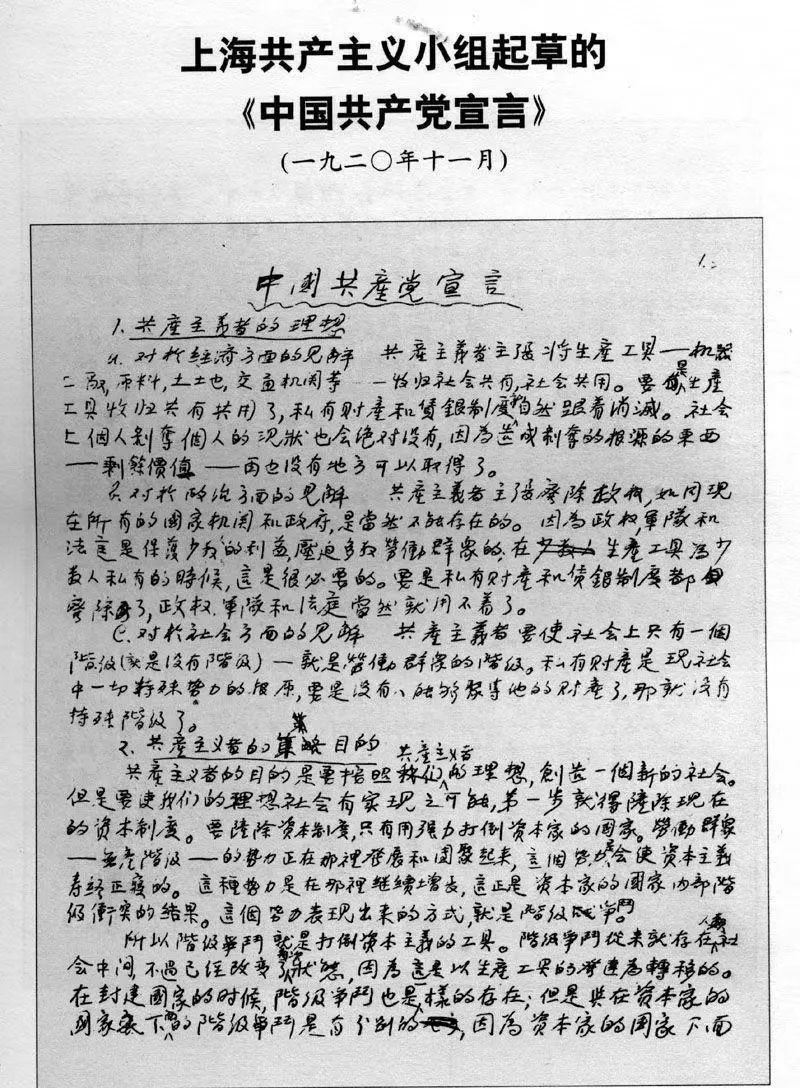 上海共产主义小组起草的
《中国共产党宣言》
(一九二〇年十一月)
1.
中國共產党宣言
1. 共產主義者的理想
a. 对於经济方面的见解 共產主義者主張将生產工具——机器
工厰，原料，土地，交通机関等——收归社会共有，社会共用。要是生產
工具收归共有共用了，私有财產和賃銀制度就自然跟着消滅。社会
上個人剝奪個人的現狀也会绝对没有，因為造成剝奪的根源的東西
——剩餘價值——再也没有地方可以取得了。
B. 对於政治方面的见解 共產主義者主張廢除政权，如同現
在所有的國家机関和政府，是當然不能存在的。因為政权，軍隊和
法庭是保護少数的利益，壓迫多数勞働群衆的，在生產工具為少
数人私有的時候，這是很必要的。要是私有财產和賃銀制度都
廢除了，政权、軍隊和法庭當然就用不着了。
C. 对於社会方面的见解 共產主義者要使社会上只有一個
階级(就是没有階级)——就是勞働群衆的階级。私有财產是現社会
中一切特殊势力的根原，要是没有人能够聚集他的财產了，那就没有
特殊階级了。
2. 共產主義者的目的
共產主義者的目的是要按照共產主義者的理想，創造一個新的社会。
但是要使我们的理想社会有实现之可能，第一步就得除现在
的资本制度。要除资本制度，只有用强力打倒资本家的國家。勞働群衆
——無產階级——的势力正在那裡發展和團聚起来，這個势力会使资本主義
寿终正寝的。這種势力是在那裡继续增長，這正是资本家的國家内部階
级衝突的结果。這個势力表现出来的方式，就是階级争鬥。
所以階级争鬥就是打倒资本主義的工具。階级争鬥從来就存在人類社
会中间，不過已经改变狀態，因為這是以生產工具的發達為轉移的。
在封建國家的时候，階级争鬥也是樣的存在；但是與在资本家的
國家裏下面的階级争鬥是有分别的，因為资本家的國家下面